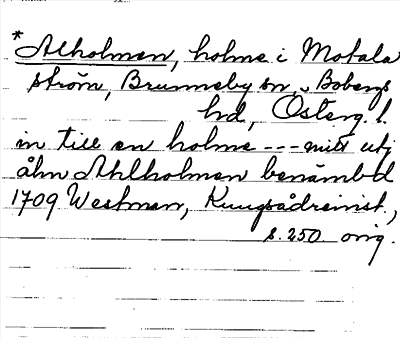 *Alholmen, holme i Motala
ström, Brunneby sn, Bobergs
hd, Österg. l.
in till en holme --- mitt utj
åhn Ahlholmen benämbd
1709 Westman, Kungsådreinst.,
s. 250 orig.